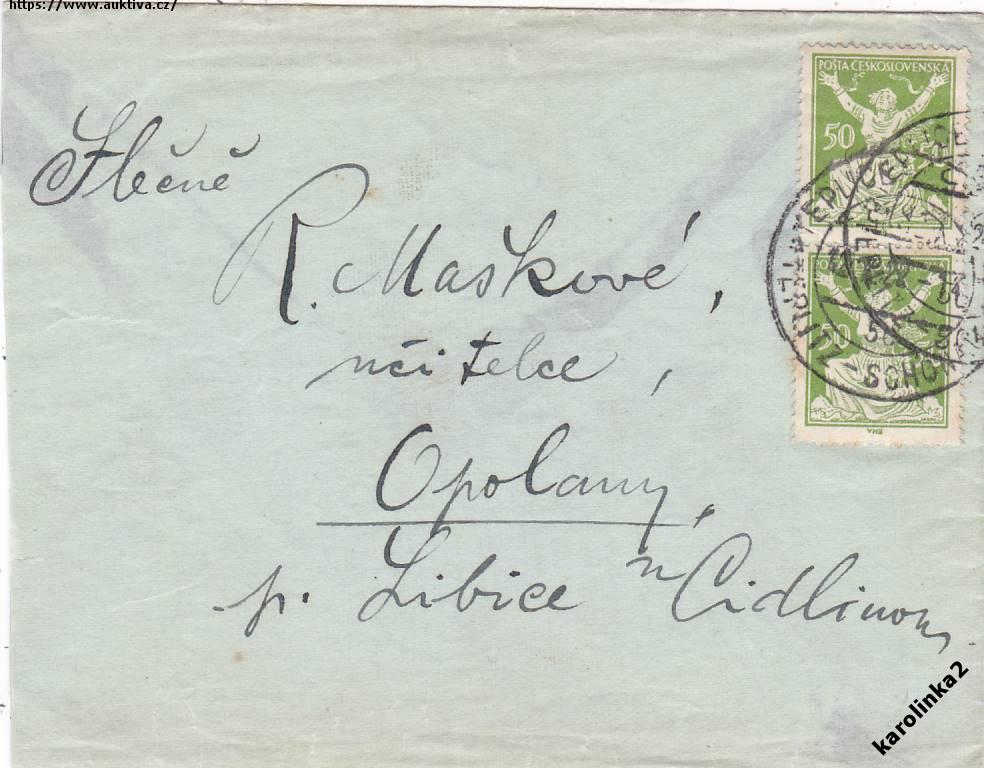 https://www.auktiva.cz/
POŠTA ČESKOSLOVENSKÁ
50
50
Slečně
R. Maškové,
učitelce,
Opolany,
p. Libice n Cidlinou
karolinka2